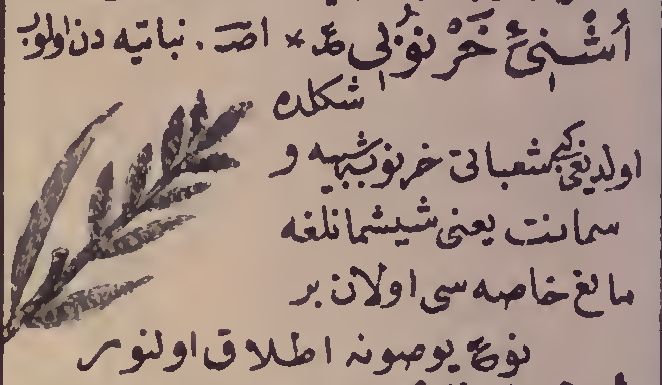 اُشْنِئ خَرْنُوبُلى عـ × اصـ . نباتيه دن اولوب
شكلده
اولديغى كبى شعباتى خرنوبه شبيه و
سمانت يعنى شيشمانلغه
مانع خاصه سى اولان بر
نوع يوصونه اطلاق اولنور